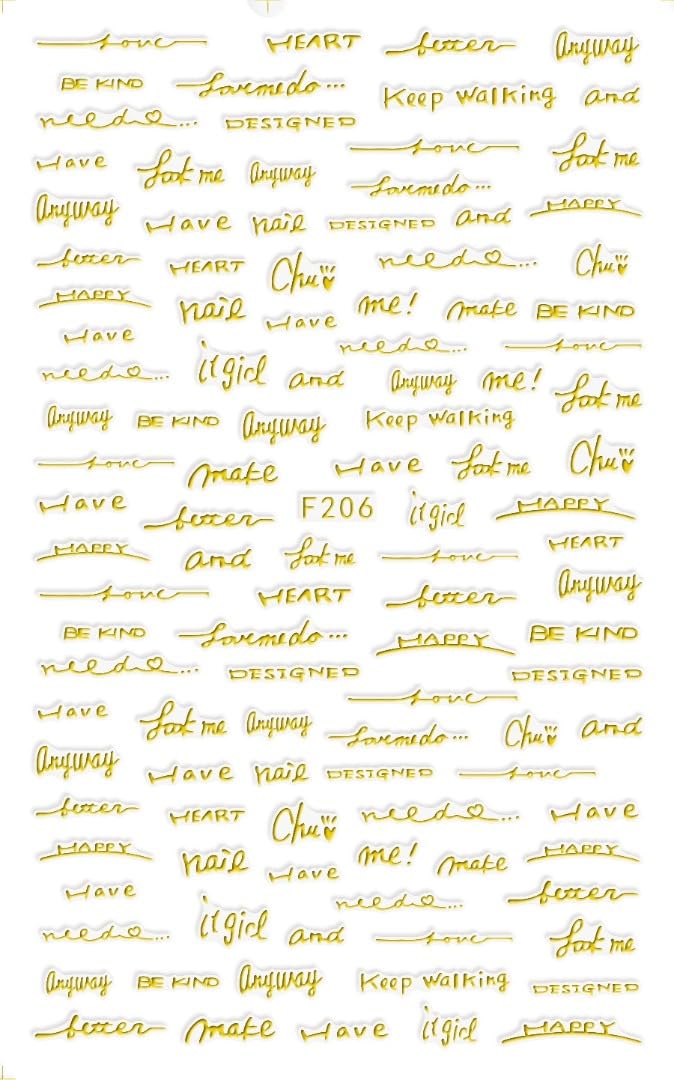 Love HEART better Anyway
BE KIND Lovemedo...
Keep walking and
need... DESIGNED
Love
Have Look me Anyway
Lovemedo...
Anyway Have nail DESIGNED and HAPPY
better HEART Chu need... Chu
HAPPY nail Have me! make BE KIND
Have need... Love
need... itgirl and Anyway me! Look me
Anyway BE KIND Anyway Keep walking
Love make Have Look me Chu
Have better F206 itgirl HAPPY
HAPPY and Look me Love HEART
Love HEART better Anyway
BE KIND Lovemedo... HAPPY BE KIND
need... DESIGNED DESIGNED
Love
Have Look me Anyway Lovemedo... Chu and
Anyway Have nail DESIGNED Love
better HEART Chu need... Have
HAPPY nail Have me! make HAPPY
Have need... better
need... itgirl and Love Look me
Anyway BE KIND Anyway Keep walking DESIGNED
better make Have itgirl HAPPY